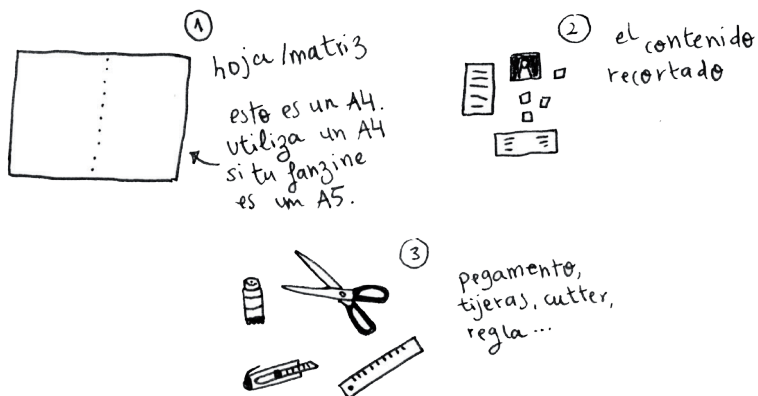 1
hoja/matriz
esto es un A4.
utiliza un A4
si tu fanzine
es un A5.
2
el contenido
recortado
3
pegamento,
tijeras, cutter,
regla...